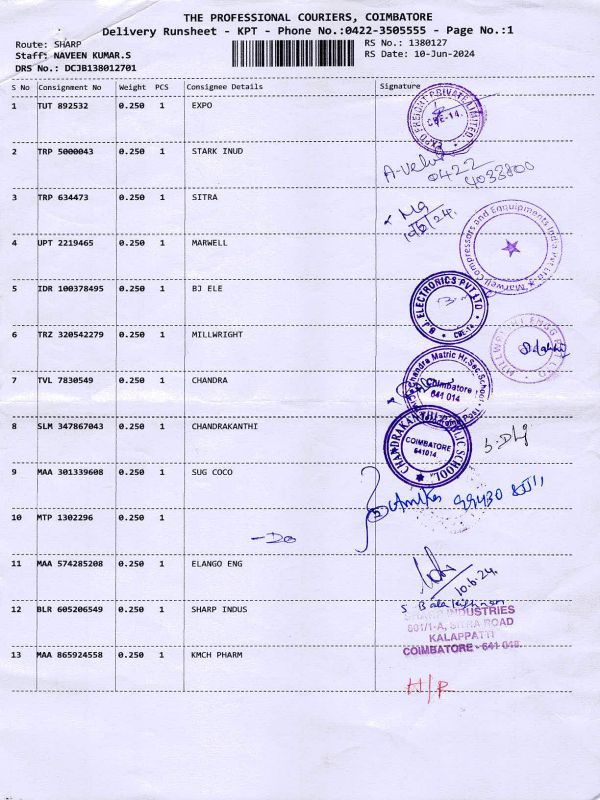 THE PROFESSIONAL COURIERS, COIMBATORE
Delivery Runsheet - KPT - Phone No.:0422-3505555 - Page No.:1
Route: SHARP RS No.: 1380127
Staff: NAVEEN KUMAR.S RS Date: 10-Jun-2024
DRS No.: DCJB138012701
S No Consignment No Weight PCS Consignee Details Signature
1 TUT 892532 0.250 1 EXPO
CBE-14.
2 TRP 5000043 0.250 1 STARK INUD
0422
4033800
3 TRP 634473 0.250 1 SITRA
10/6/24.
4 UPT 2219465 0.250 1 MARWELL
Marwell Compressors and Enquipments India Pvt Ltd
5 IDR 100378495 0.250 1 BJ ELE
B.J. ELECTRONICS PVT LTD
CBE-14
6 TRZ 320542279 0.250 1 MILLWRIGHT
7 TVL 7830549 0.250 1 CHANDRA
Chandra Matric Hr.Sec.School
Coimbatore
641 014
8 SLM 347867043 0.250 1 CHANDRAKANTHI
CHANDRAKANTHI PUBLIC SCHOOL
COIMBATORE
641014
9 MAA 301339608 0.250 1 SUG COCO
10 MTP 1302296 0.250 1
-Do
11 MAA 574285208 0.250 1 ELANGO ENG
10.6.24.
12 BLR 605206549 0.250 1 SHARP INDUS
SHARP INDUSTRIES
601/1-A, SITRA ROAD
KALAPPATTI
COIMBATORE - 641 048.
13 MAA 865924558 0.250 1 KMCH PHARM
H/R